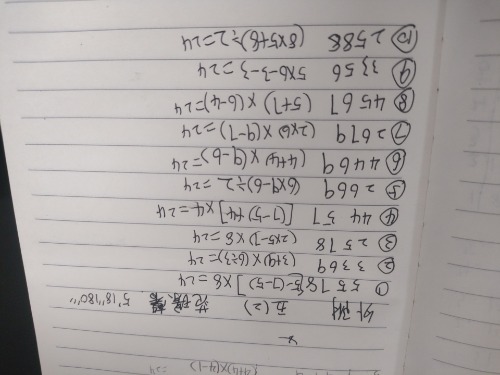 外附 五(2) 5'18"180'''
① 5578 [5-(7-5)]×8=24
② 3369 (3+9)×(6÷3)=24
③ 2578 (2×5-7)×8=24
④ 4457 [(7-5)+4]×4=24
⑤ 2669 (6×9-6)÷2=24
⑥ 4469 (4+4)×(9-6)=24
⑦ 2679 (2×6)×(9-7)=24
⑧ 4567 (5+7)×(6-4)=24
⑨ 3356 5×6-3-3=24
⑩ 2588 (8×5+8)÷2=24